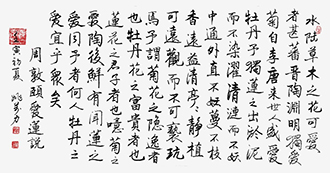 水陸草木之花可愛
者甚蕃晉陶淵明獨愛
菊自李唐来世人盛愛
牡丹予獨愛蓮之出淤泥
而不染濯清漣而不妖
中通外直不蔓不枝
香遠益清亭亭静植
可遠觀而不可褻玩
焉予謂菊花之隱逸者
也牡丹花之富貴者也
蓮花之君子者也噫菊之
愛陶後鮮有聞蓮之
愛同予者何人牡丹之
愛宜乎衆矣
周敦頤愛蓮說
寅初夏